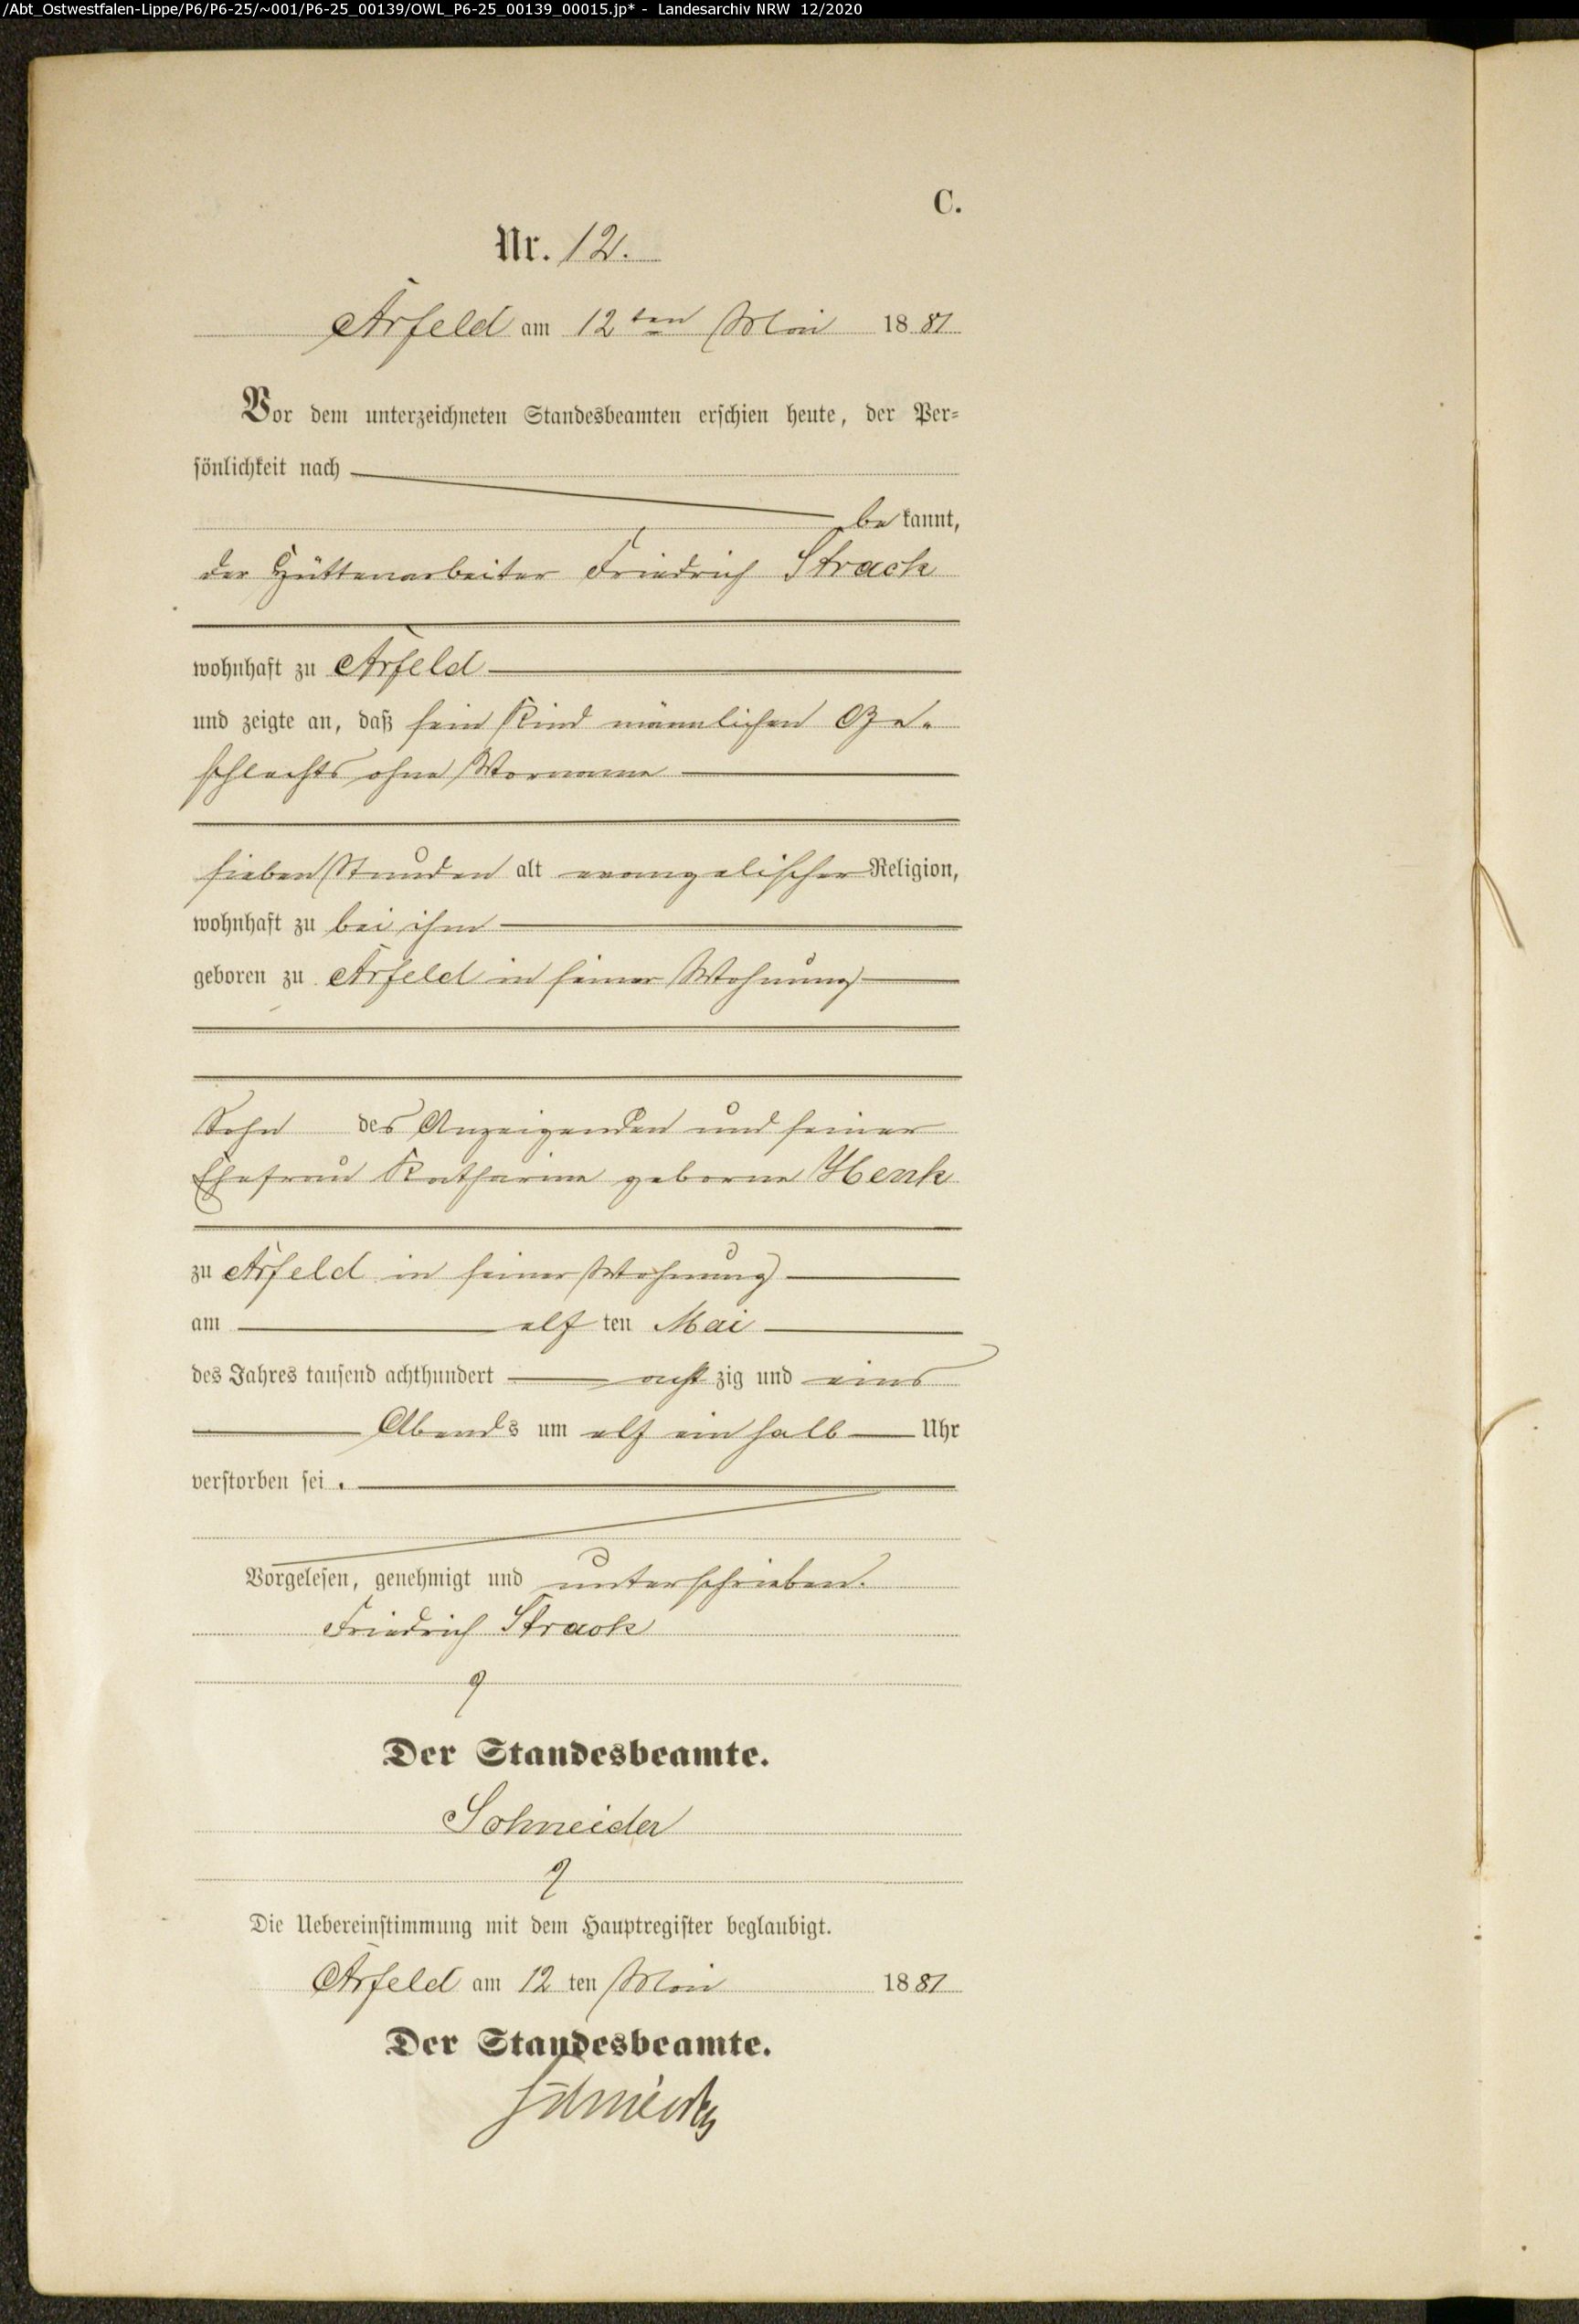 /Abt_Ostwestfalen-Lippe/P6/P6-25/~001/P6-25_00139/OWL_P6-25_00139_00015.jp* - Landesarchiv NRW 12/2020
C.
Nr. 12.
Arfeld am 12ten Mai 1881
Vor dem unterzeichneten Standesbeamten erschien heute, der Per=
sönlichkeit nach
bekannt,
der Hüttenarbeiter Friedrich Strack
wohnhaft zu Arfeld
und zeigte an, daß sein Kind männlichen Ge-
schlechts ohne Vorname
sieben Stunden alt evangelischer Religion,
wohnhaft zu bei ihm
geboren zu Arfeld in seiner Wohnung
Sohn des Anzeigenden und seiner
Ehefrau Katharine geborne Henk
zu Arfeld in seiner Wohnung
am elf ten Mai
des Jahres tausend achthundert acht zig und eins
Abends um elf ein halb Uhr
verstorben sei.
Vorgelesen, genehmigt und unterschrieben.
Friedrich Strack
Der Standesbeamte.
Schneider
Die Uebereinstimmung mit dem Hauptregister beglaubigt.
Arfeld am 12 ten Mai 1881
Der Standesbeamte.
Schneider